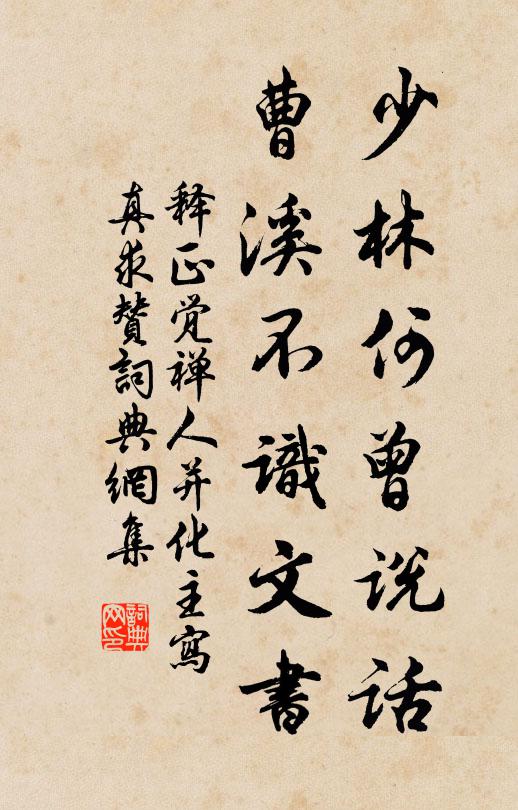 少林何曾説話
曹溪不識文書
释正觉禅人并化主寫
真求赞詞典網集
詞典網印